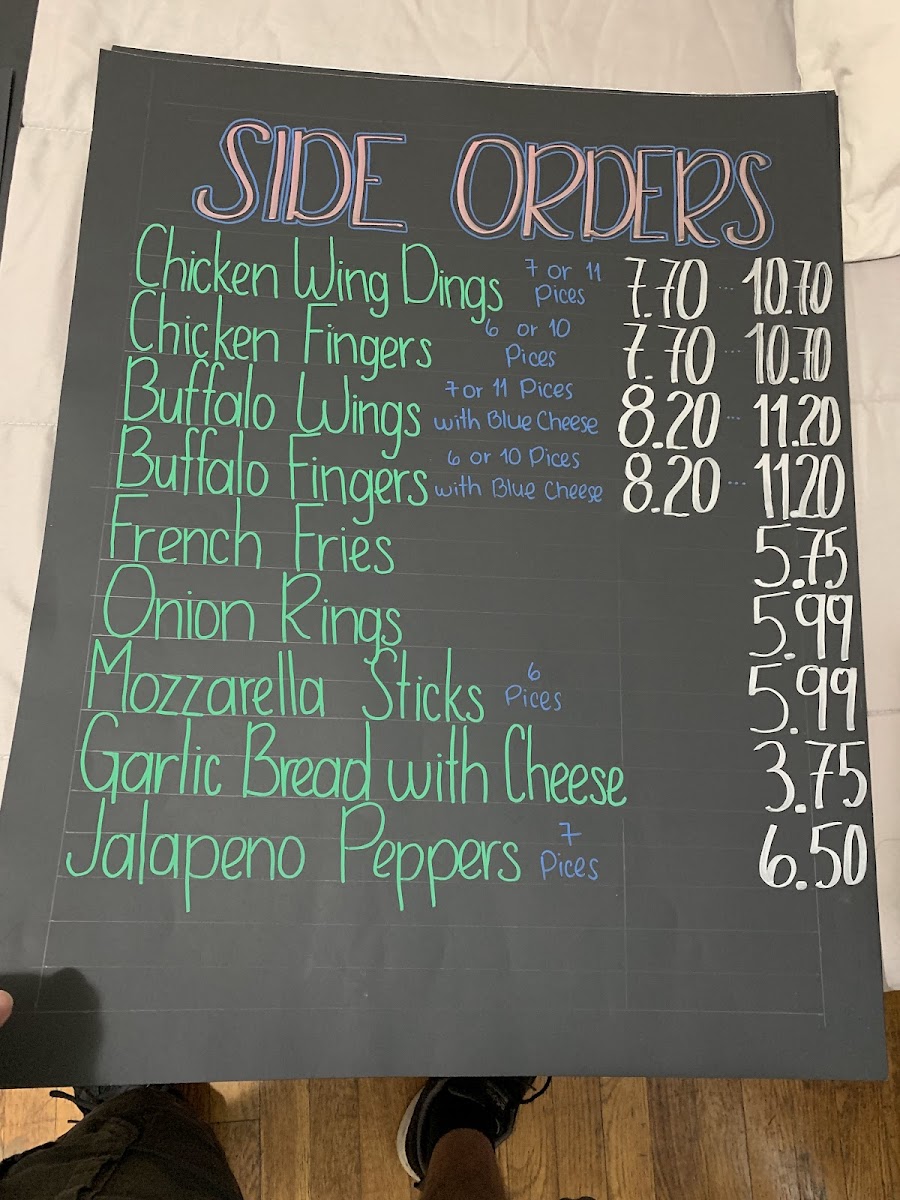 SIDE ORDERS
Chicken Wing Dings 7 or 11 Pices 7.70 ... 10.70
Chicken Fingers 6 or 10 Pices 7.70 ... 10.70
Buffalo Wings 7 or 11 Pices with Blue Cheese 8.20 ... 11.20
Buffalo Fingers 6 or 10 Pices with Blue Cheese 8.20 ... 11.20
French Fries 5.75
Onion Rings 5.99
Mozzarella Sticks 6 Pices 5.99
Garlic Bread with Cheese 3.75
Jalapeno Peppers 7 Pices 6.50